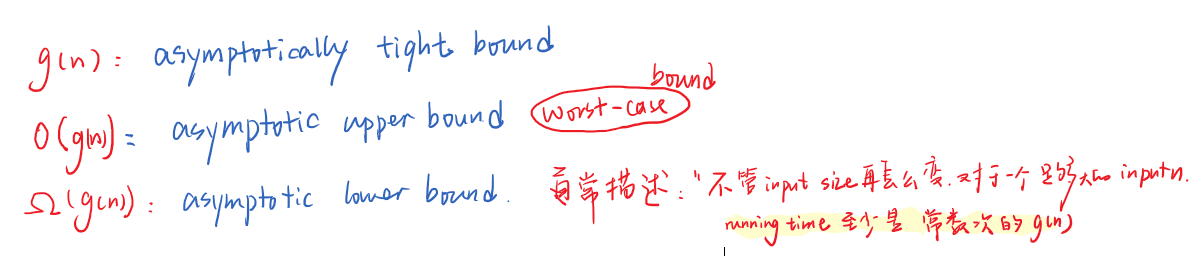 g(n): asymptotically tight bound
O(g(n)) = asymptotic upper bound worst-case bound
Ω(g(n)): asymptotic lower bound. 通常描述:"不管input size再怎么变.对于一个足够大的input n.
running time 至少是 常数次的 g(n)